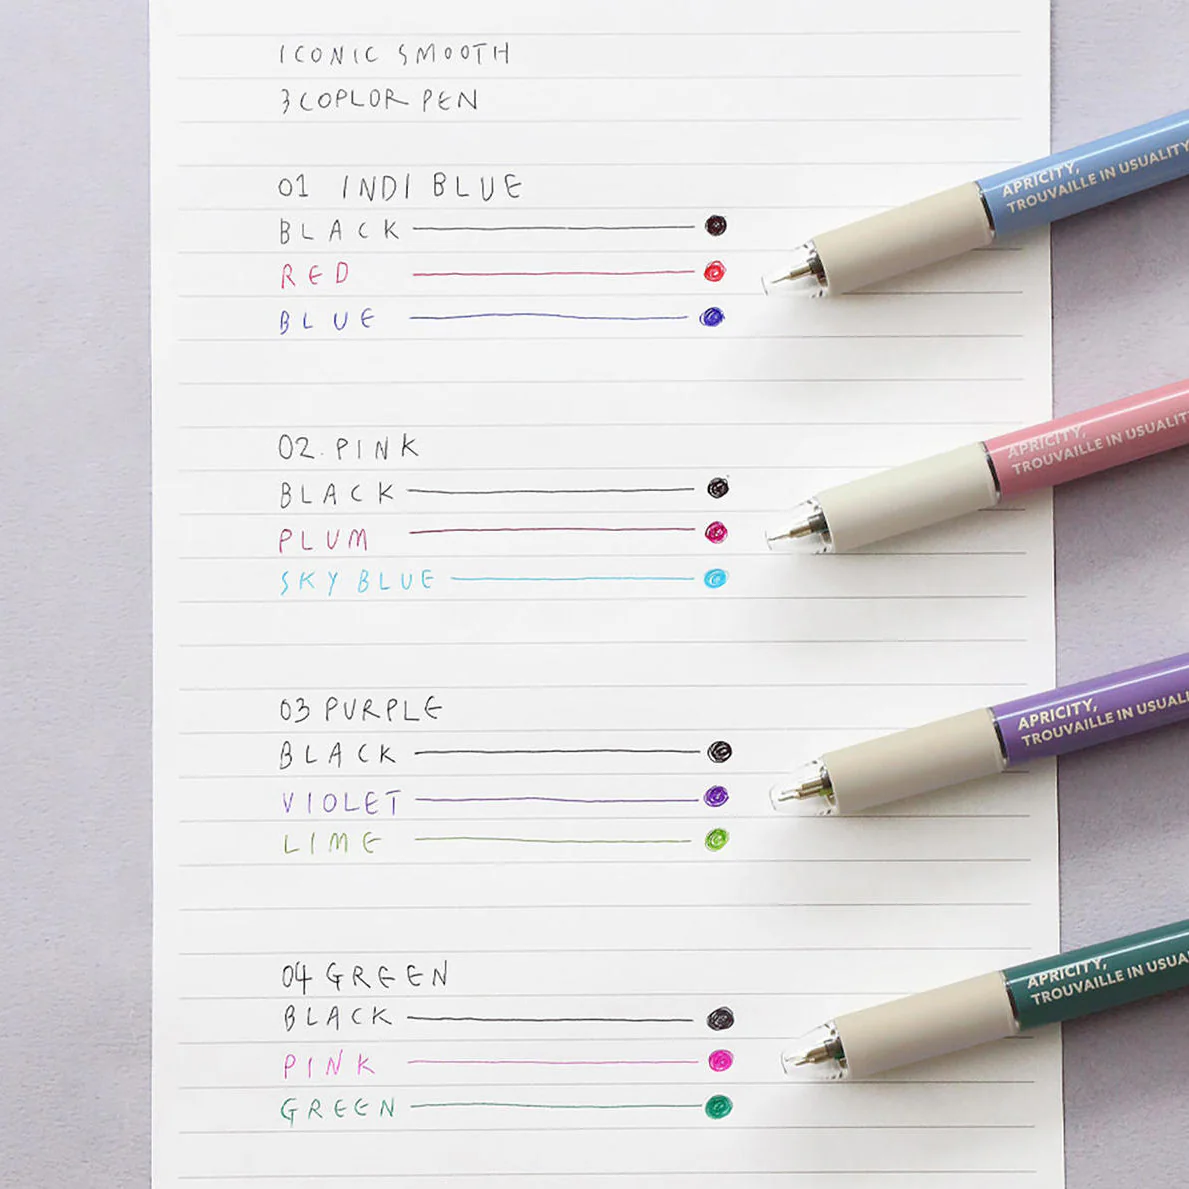 ICONIC SMOOTH
3 COPLOR PEN
01 INDI BLUE
BLACK
RED
BLUE
02. PINK
BLACK
PLUM
SKY BLUE
03 PURPLE
BLACK
VIOLET
LIME
04 GREEN
BLACK
PINK
GREEN
APRICITY,
TROUVAILLE IN USUALITY
APRICITY,
TROUVAILLE IN USUALIT
APRICITY,
TROUVAILLE IN USUAL
APRICITY,
TROUVAILLE IN USUA